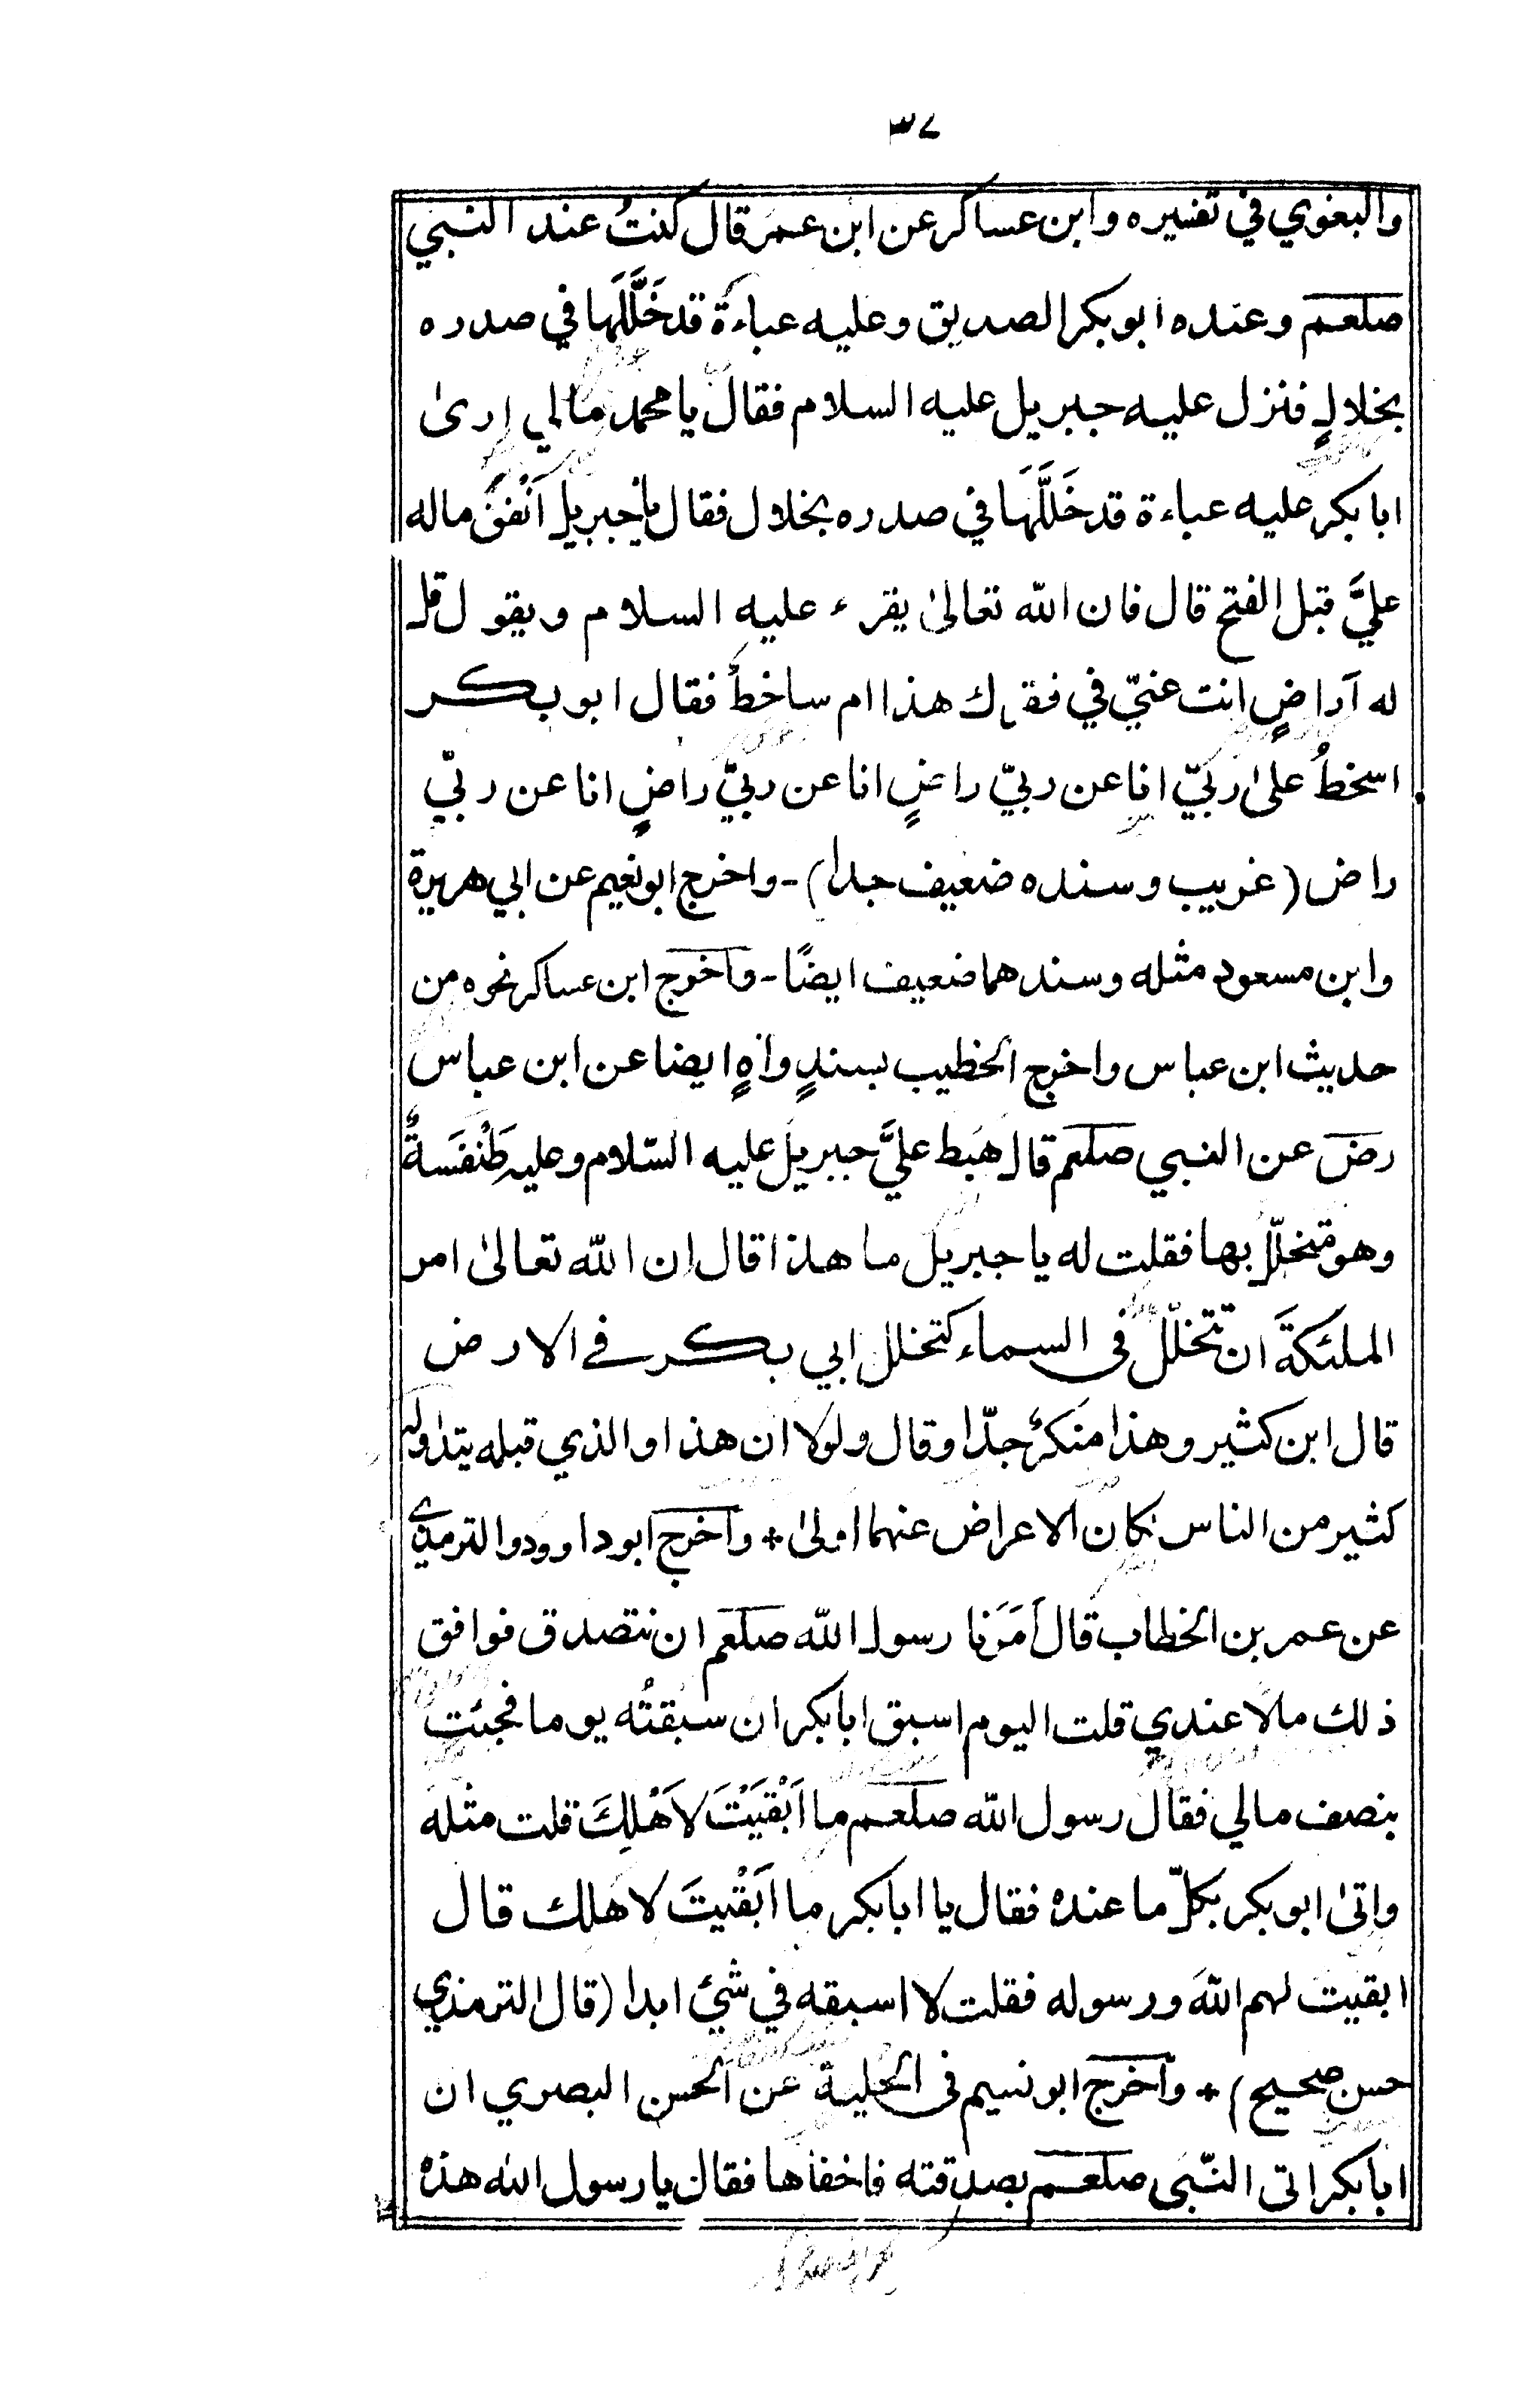 ٣٧
والبغوي في تفسيره وابن عساكر عن ابن عمر قال كنتُ عند النبي
صلعم وعنده ابو بكر الصديق وعليه عباءة قد خَلَّلَها في صدره
بخلالٍ فنزل عليه جبريل عليه السلام فقال يا محمد مالي ارىٰ
ابا بكر عليه عباءة قد خَلَّلَهَا في صدره بخلال فقال يا جبريل اَنْفَقَ ماله
عليَّ قبل الفتح قال فان الله تعالىٰ يقرء عليه السلام ويقول قل
له آراضٍ انت عنيّ في فقرك هذا ام ساخطٌ فقال ابو بكر
اسخطُ علىٰ ربيّ انا عن ربيّ راضٍ انا عن ربيّ راضٍ انا عن ربيّ
راض (غريب وسنده ضعيف جدا) - واخرج ابو نعيم عن ابي هريرة
وابن مسعود مثله وسندهما ضعيف ايضًا - واخرج ابن عساكر نحوه من
حديث ابن عباس واخرج الخطيب بسندٍ واهٍ ايضا عن ابن عباس
رض عن النبي صلعم قال هَبط عليَّ جبريل عليه السّلام وعليه طَنْفَسةٌ
وهو متخلّل بها فقلت له يا جبريل ما هذا قال ان الله تعالىٰ امر
الملئكةَ ان تتخلّل في السماء كتخلل ابي بكر في الارض
قال ابن كثير وهذا منكرٌ جدّا وقال ولولا ان هذا والذي قبله يتداوله
كثير من الناس لكان الاعراض عنهما اولىٰ + واخرج ابو داوود والترمذي
عن عمر بن الخطاب قال اَمَرَنا رسول الله صلعم ان نتصدق فوافق
ذلك مالا عندي قلت اليوم اسبق ابا بكر ان سبقتُه يوما فجئت
بنصف مالي فقال رسول الله صلعم ما اَبْقَيْتَ لاَهْلِكَ قلت مثله
واتىٰ ابو بكر بكلّ ما عنده فقال يا ابا بكر ما اَبَقْيتَ لاهلك قال
ابقيت لهم الله ورسوله فقلت لا اسبقه في شئ ابدا (قال الترمذي
حسن صحيح) + واخرج ابو نعيم في الحلية عن الحسن البصري ان
ابا بكر اتى النّبي صلعم بصدقته فاخفاها فقال يا رسول الله هذه